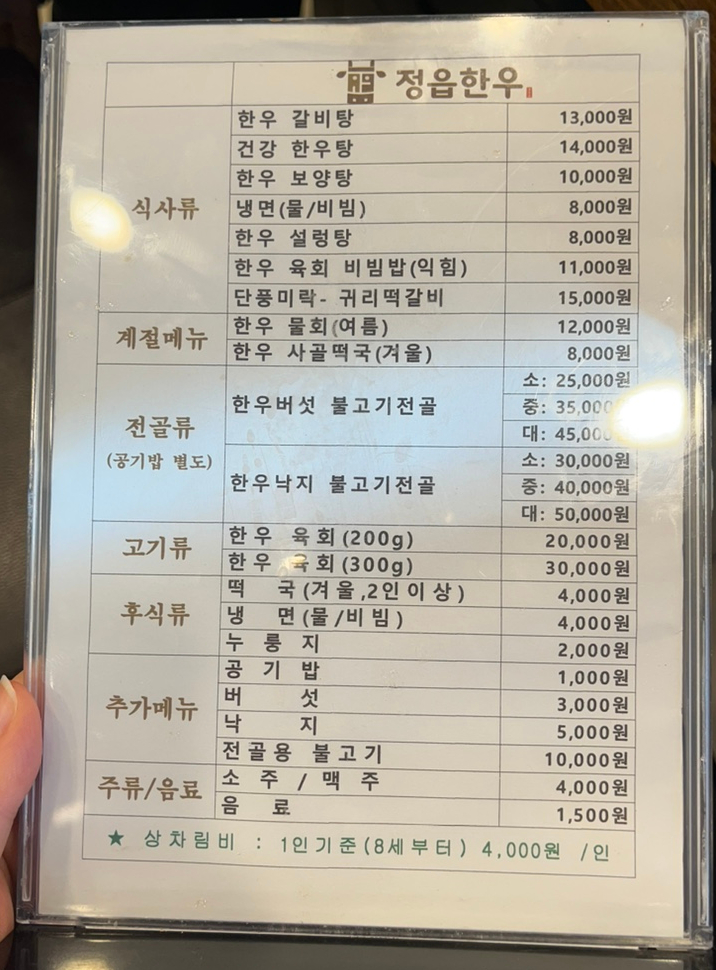 정읍한우
식사류
한우 갈비탕 13,000원
건강 한우탕 14,000원
한우 보양탕 10,000원
냉면(물/비빔) 8,000원
한우 설렁탕 8,000원
한우 육회 비빔밥(익힘) 11,000원
단풍미락- 귀리떡갈비 15,000원
계절메뉴
한우 물회(여름) 12,000원
한우 사골떡국(겨울) 8,000원
전골류
(공기밥 별도)
한우버섯 불고기전골
소: 25,000원
중: 35,000
대: 45,000
한우낙지 불고기전골
소: 30,000원
중: 40,000원
대: 50,000원
고기류
한우 육회(200g) 20,000원
한우 육회(300g) 30,000원
후식류
떡 국(겨울,2인이상) 4,000원
냉 면(물/비빔) 4,000원
누 룽 지 2,000원
추가메뉴
공 기 밥 1,000원
버 섯 3,000원
낙 지 5,000원
전골용 불고기 10,000원
주류/음료
소 주 / 맥 주 4,000원
음 료 1,500원
★ 상차림비 : 1인기준(8세부터) 4,000원 /인